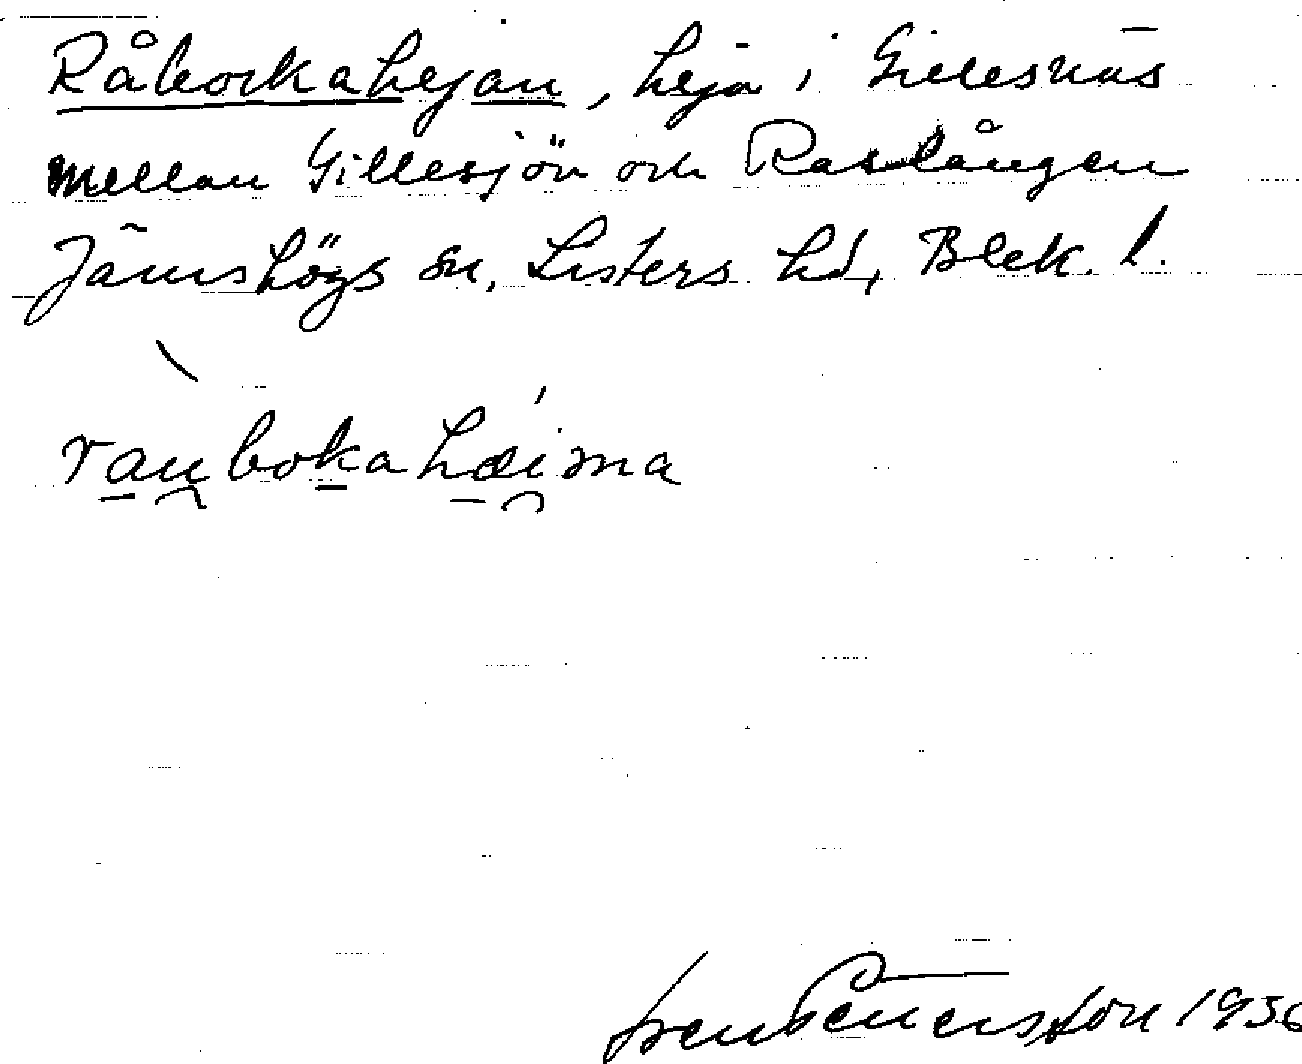 Råbockahejan, heja i Gillesnäs
mellan Gillesjön och Raslången
Jämshögs sn, Listers hd, Blek. l.
raubokahæima
Sven Benson 1936